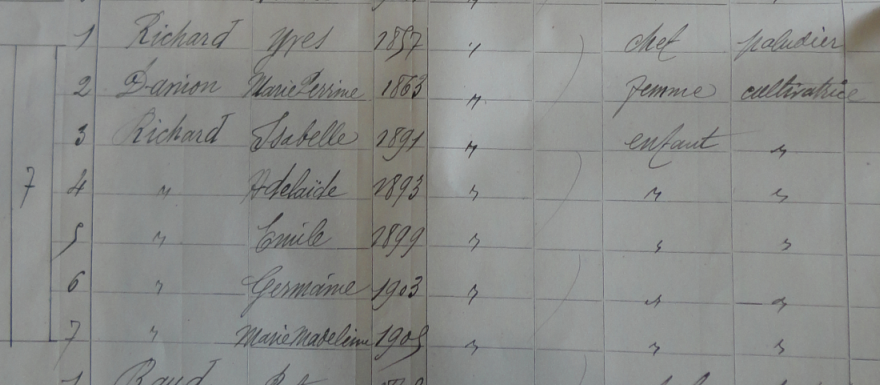 1 Richard Yves 1857 " chef paludier
2 Danion Marie Perrine 1863 " femme cultivatrice
3 Richard Isabelle 1891 " enfant "
7 4 " Adelaïde 1893 " " "
5 " Emile 1899 " " "
6 " Germaine 1903 " " "
7 " Marie Madeleine 1905 " " "
1 Raud